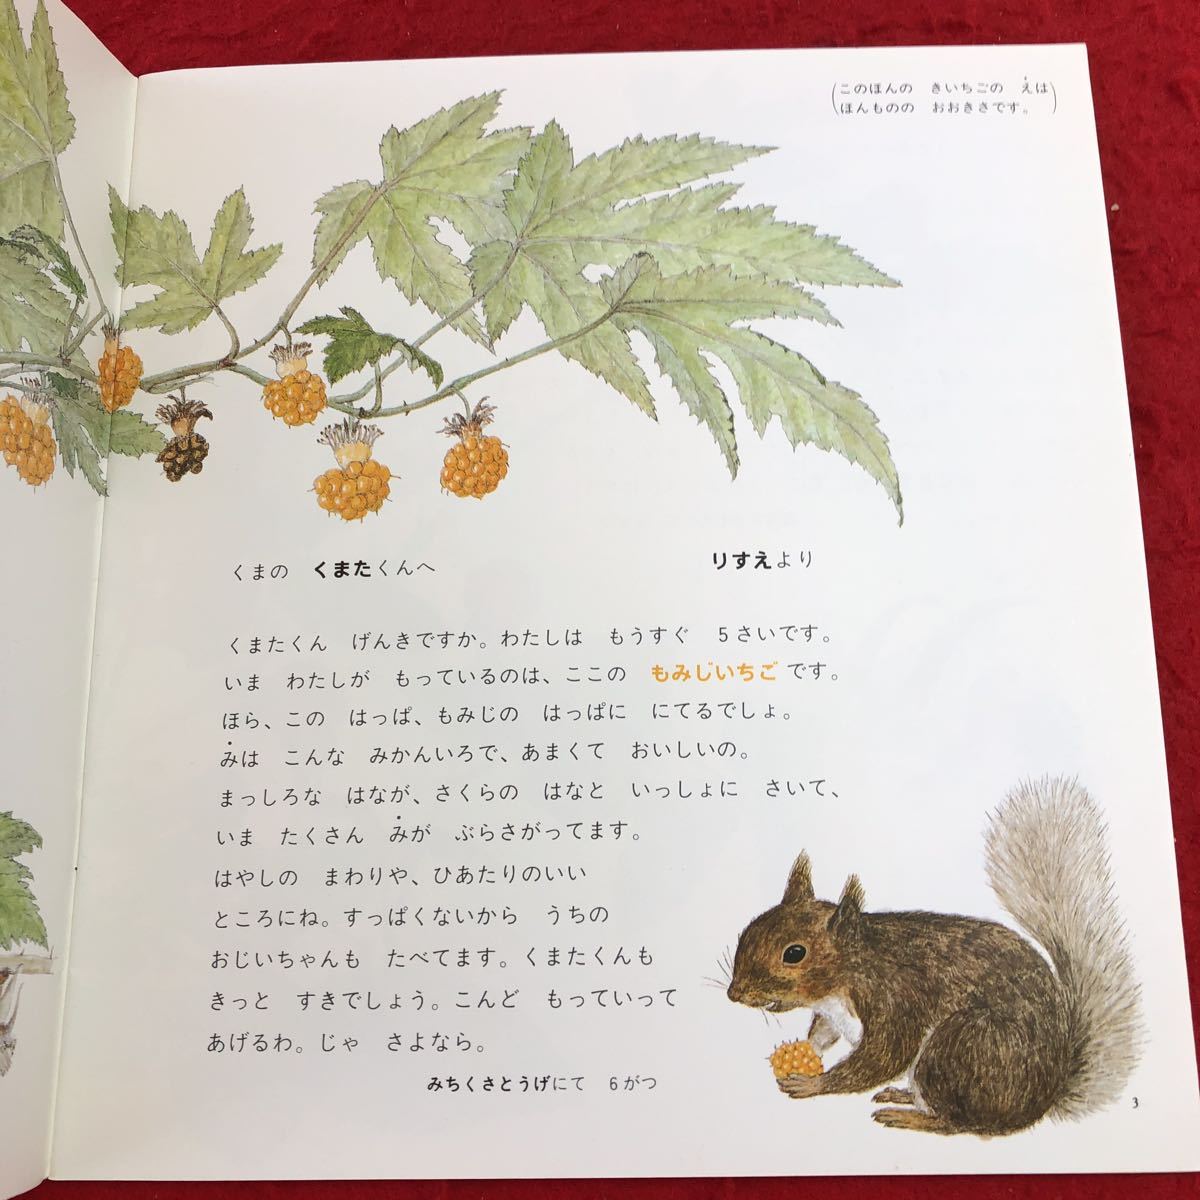 (このほんの　きいちごの　えは
ほんものの　おおきさです。)
くまの　くまたくんへ　　りすえより
くまたくん　げんきですか。わたしは　もうすぐ　5さいです。
いま　わたしが　もっているのは、ここの　もみじいちごです。
ほら、この　はっぱ、もみじの　はっぱに　にてるでしょ。
みは　こんな　みかんいろで、あまくて　おいしいの。
まっしろな　はなが、さくらの　はなと　いっしょに　さいて、
いま　たくさん　みが　ぶらさがってます。
はやしの　まわりや、ひあたりのいい
ところにね。すっぱくないから　うちの
おじいちゃんも　たべてます。くまたくんも
きっと　すきでしょう。こんど　もっていって
あげるわ。じゃ　さよなら。
みちくさとうげにて　6がつ
3